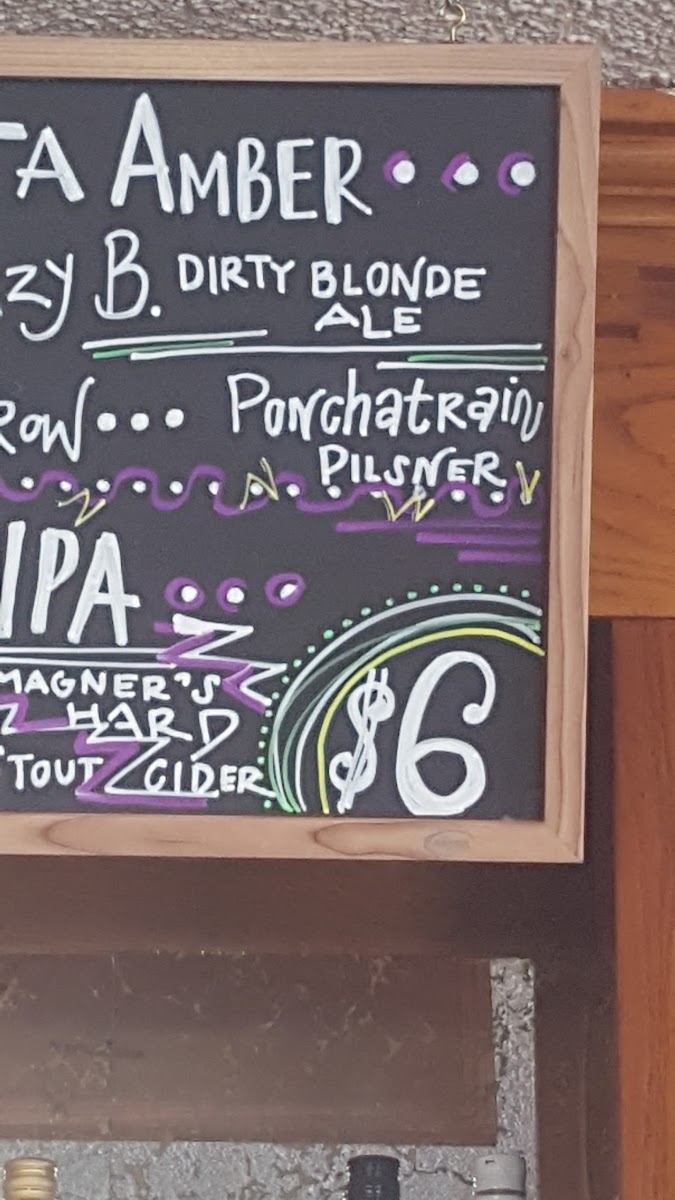 TA AMBER
zy B. DIRTY BLONDE
ALE
ROW... Ponchatrain
PILSNER
IPA
MAGNER'S
HARD
TOUT CIDER
$6